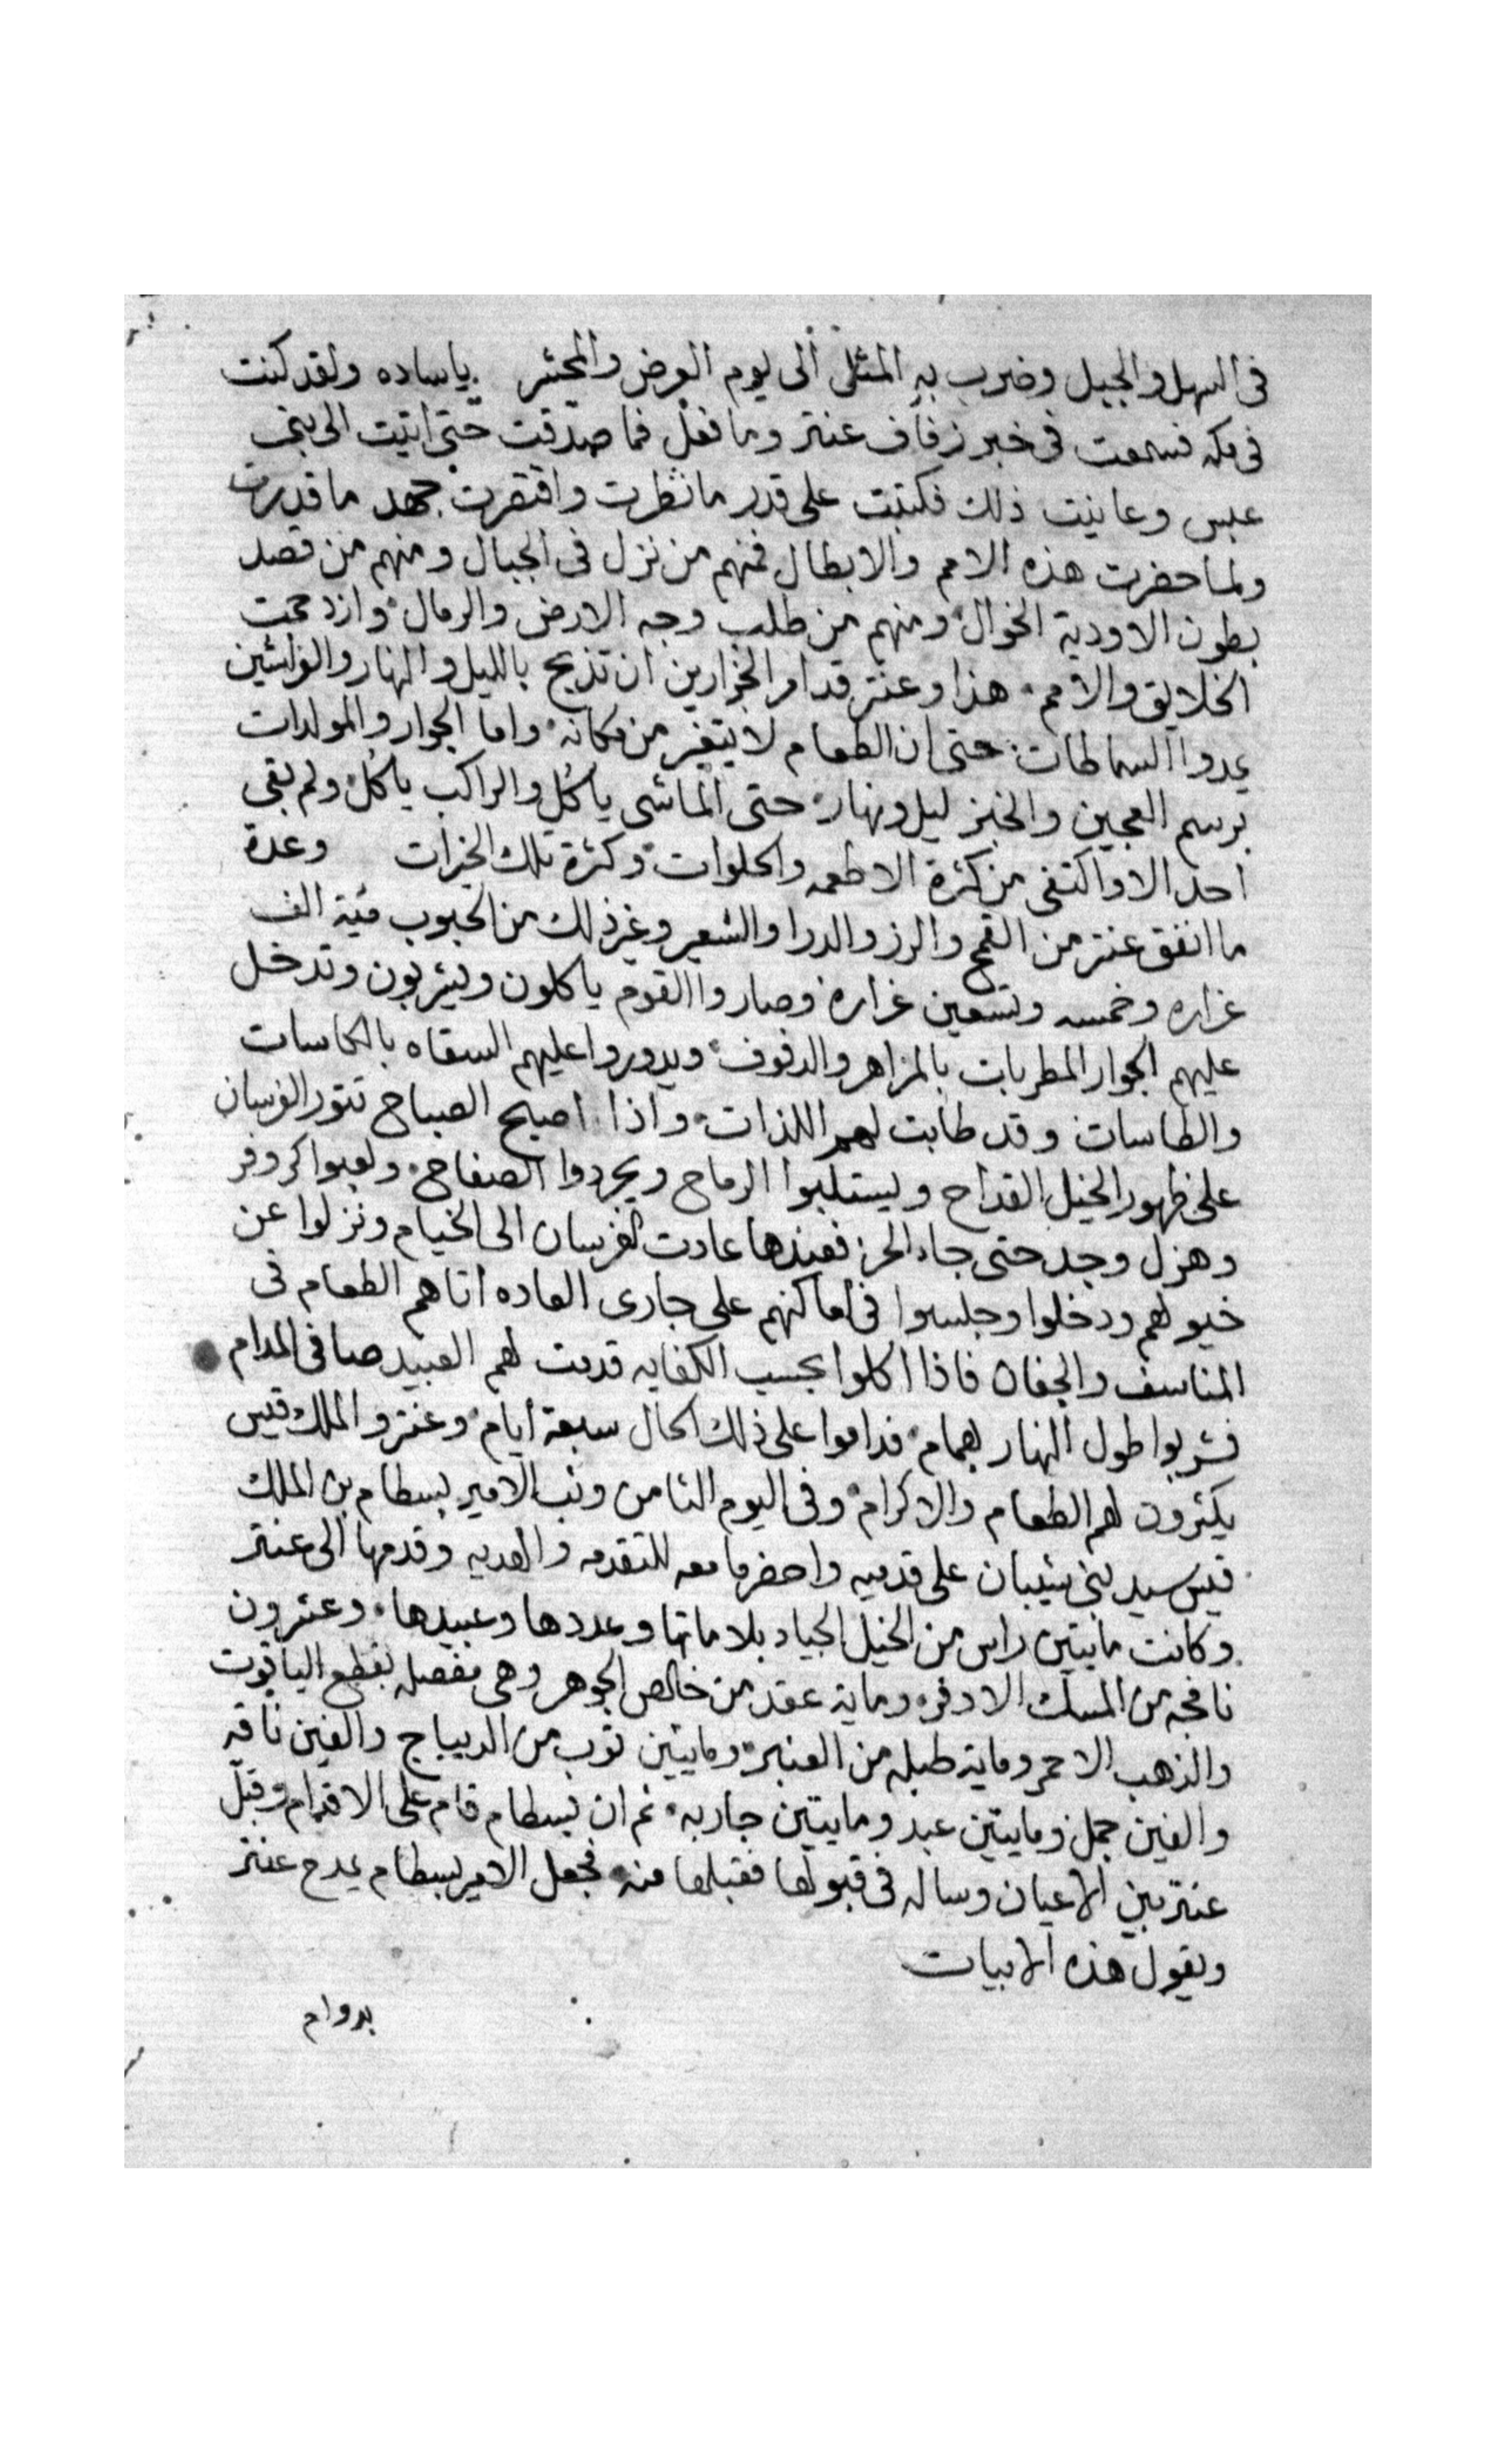 فى السهل والجبل وضرب به المثل الى يوم العرض والمحشر ياساده ولقد كنت
فى مكه فسمعت فى خبر زفاف عنتر وما فعل فما صدقت حتى اتيت الى بنى
عبس وعاينت ذلك فكتبت على قدر ما نظرت واقتصرت جهد ما قدرت
ولما حضرت هذه الامم والابطال فمنهم من نزل فى الجبال ومنهم من قصد
بطون الاودية الخوال ومنهم من طلب وجه الارض والرمال وازدحمت
الخلايق والامم هذا وعنتر قد امر الجزارين ان تذبح بالليل والنهار والفراشين
يمدوا السماطات حتى ان الطعام لا يتغير من مكانه واما الجوار والمولدات
برسم العجين والخبز ليل ونهار حتى الماشى ياكل والراكب ياكل ولم بقى
احد الا واكتفى من كثرة الاطعمه والحلوات وكثرة تلك الخيرات وعدة
ما انفق عنتر من القمح والرز والدرا والشعير وغير ذلك من الحبوب مية الف
غراره وخمسه وتسعين غراره وصاروا القوم ياكلون ويشربون وتدخل
عليهم الجوار المطربات بالمزاهر والدفوف ويدوروا عليهم السقاه بالكاسات
والطاسات وقد طابت لهم اللذات واذا اصبح الصباح تتور الفرسان
على ظهور الخيل القداح ويستلبوا الرماح ويجردوا الصفاح ولعبوا كر وفر
وهزل وجد حتى جاء الحر فعندها عادت الفرسان الى الخيام ونزلوا عن
خيولهم ودخلوا وجلسوا فى اماكنهم على جارى العاده اتاهم الطعام فى
المناسف والجفان فاذا اكلوا بحسب الكفايه قدمت لهم العبيد صافى المدام
فشربوا طول النهار بهمام فداموا على ذلك الحال سبعة ايام وعنتر والملك قيس
يكثرون لهم الطعام والاكرام وفى اليوم الثامن وثب الامير بسطام بن الملك
قيس سيد بنى شيبان على قدميه واحضر ما معه للتقدمه والهديه وقدمها الى عنتر
وكانت مايتين راس من الخيل الجياد بلاماتها وعددها وعبيدها وعشرون
نافجه من المسك الادفر وماية عقد من خالص الجوهر وهى مفصله بقطع الياقوت
والذهب الاحمر وماية طبله من العنبر ومايتين توب من الديباج والفين ناقه
والفين جمل ومايتين عبد ومايتين جاريه ثم ان بسطام قام على الاقدام وقبل
عنتر بين الاعيان وساله فى قبولها فقبلها منه فجعل الامير بسطام يمدح عنتر
ويقول هذه الابيات
بدوام